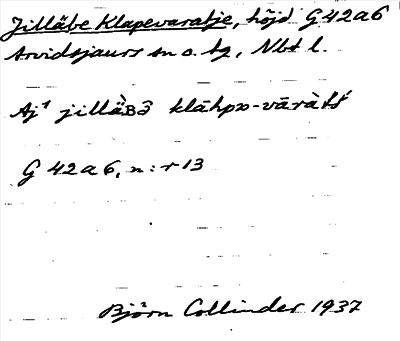 Jilläbe Klapevaratje, höjd G 42 a 6
Arvidsjaurs sn o. tg, Nbt l.
Aj¹ jillä̀ʙɜ̑ klāhpɷ-vāràt́ś
G 42 a 6, n:r 13
Björn Collinder 1937